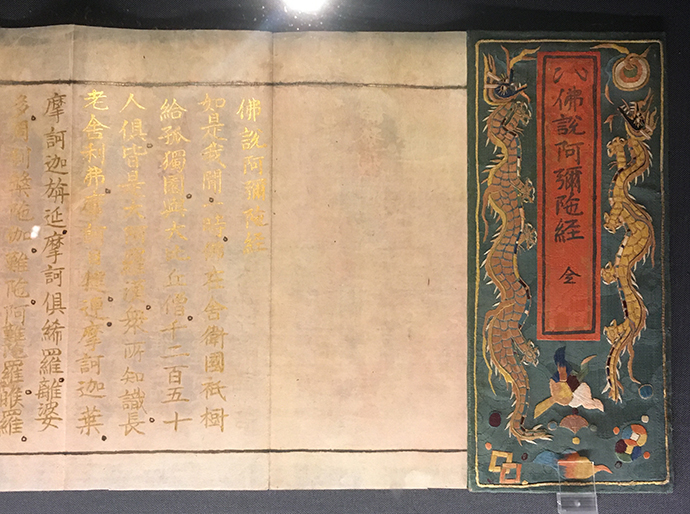 佛說阿彌陁経
全
佛說阿彌陁經
如是我聞一時佛在舍衛國祇樹
給孤獨園與大比丘僧千二百五十
人俱皆是大阿羅漢衆所知識長
老舍利弗摩訶目揵連摩訶迦葉
摩訶迦旃延摩訶俱絺羅離婆
多周利槃陁伽難陁阿難陁羅睺羅